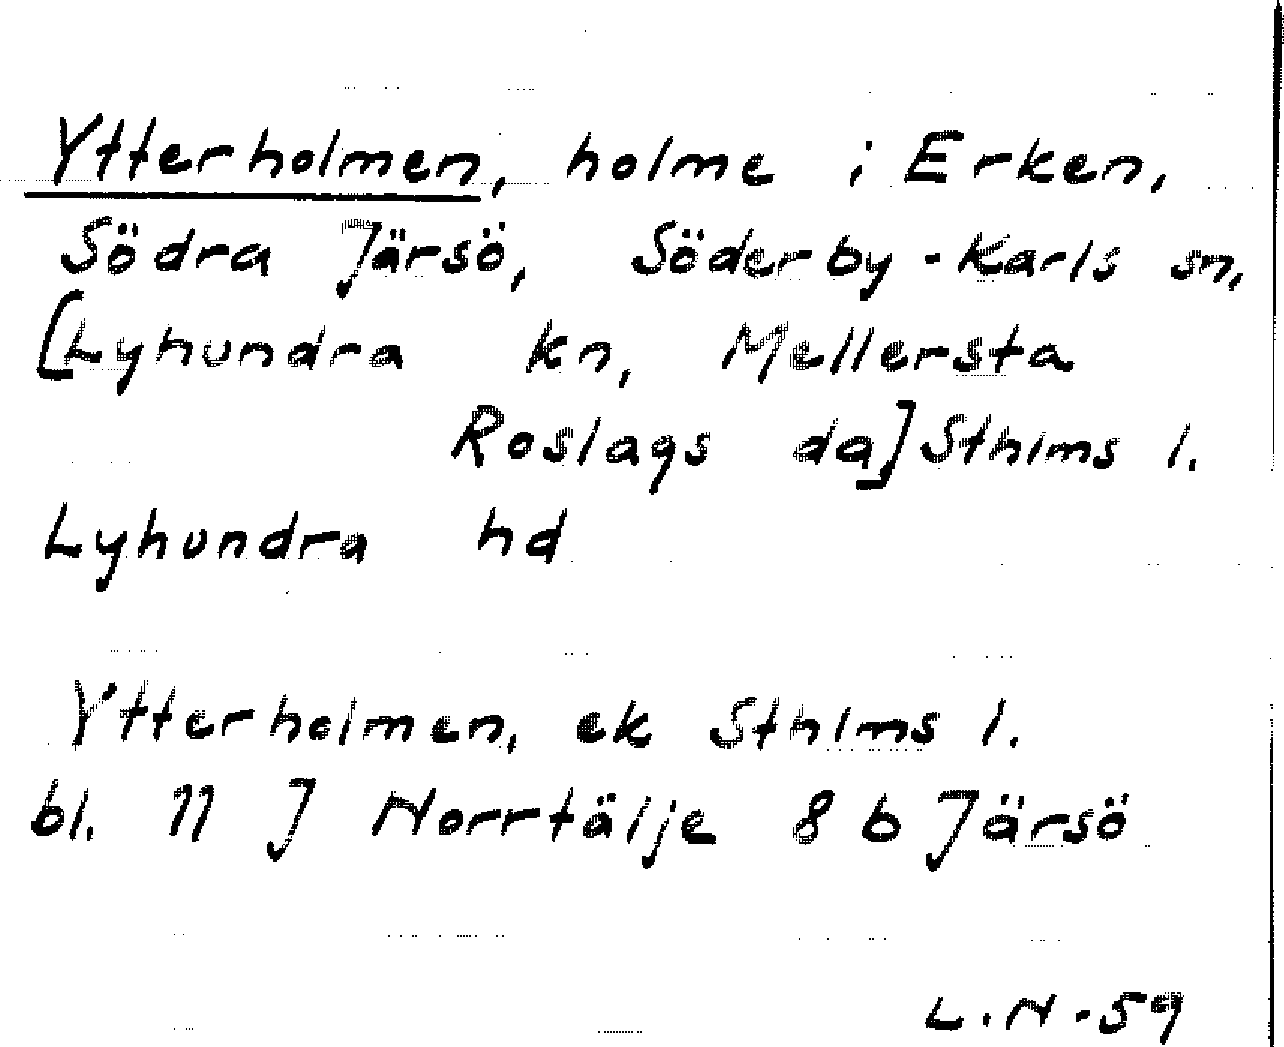 Ytterholmen, holme i Erken,
Södra Järsö, Söderby-Karls sn,
[Lyhundra kn, Mellersta
Roslags da] Sthlms l.
Lyhundra hd
Ytterholmen, ek Sthlms l.
bl. 11 J Norrtälje 8 b Järsö
L.N-59